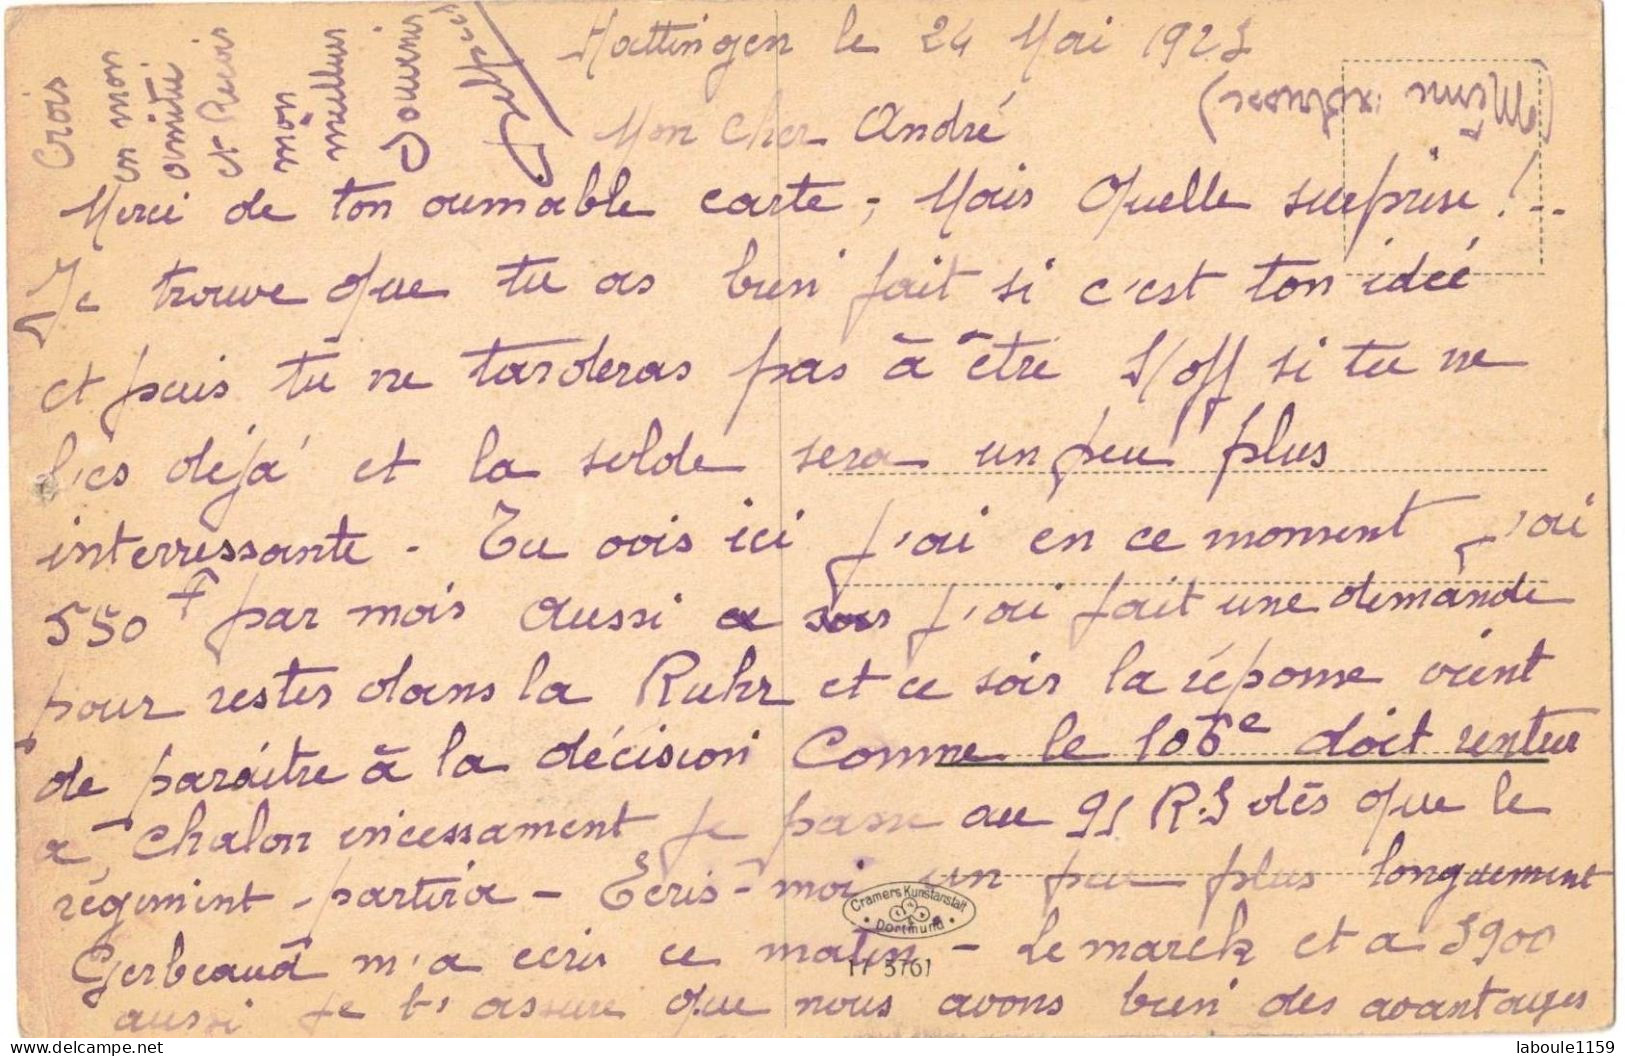 Hattingen le 24 Mai 1923
(Même adresse)
Mon cher André
Merci de ton aimable carte, Mais Quelle surprise !..
Je trouve que tu as bien fait si c'est ton idée
et puis tu ne tarderas pas à être S/off si tu ne
l'es déjà et la solde sera un peu plus
interressante - Tu vois ici j'ai en ce moment j'ai
550 F par mois aussi ce soir j'ai fait une demande
pour rester dans la Ruhr et ce soir la réponse vient
de paraitre à la décision Comme le 106e doit rentrer
à Chalon incessament je passe au 91 R.I dès que le
régiment partira - Ecris-moi un peu plus longuement
Gerbeaud m'a ecris ce matin - Le marck et a 3900
aussi je t'assure que nous avons bien des avantages
Crois
en mon
amitié
et Reçois
mon
meilleur
Souvenir
Cramers Kunstanstalt
Dortmund
17 5761
laboule1159